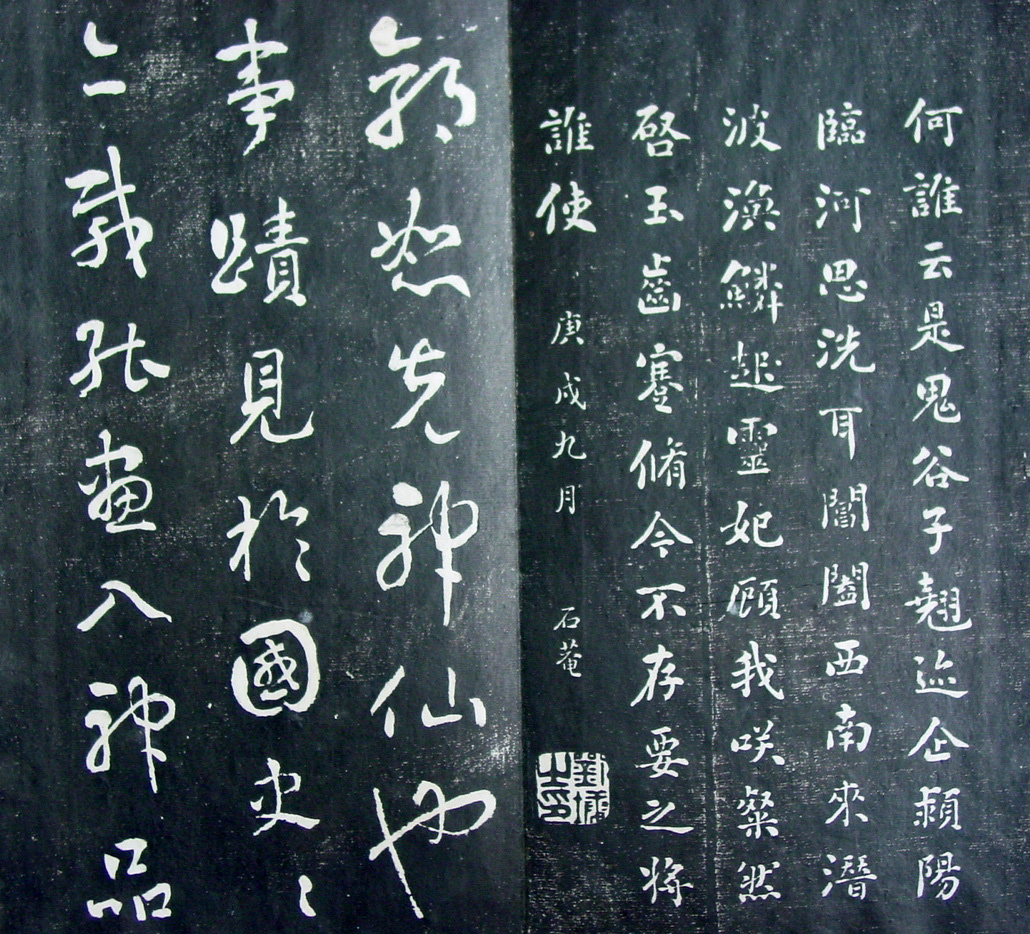 何誰云是鬼谷子翹迹企潁陽
臨河思洗耳閶闔西南來潛
波渙鱗起靈妃顧我咲粲然
啓玉齒蹇脩今不存要之將
誰使 庚戌九月 石菴
劉墉之印
郭恕先神仙也
事蹟見於國史〻
亦載張畫入神品